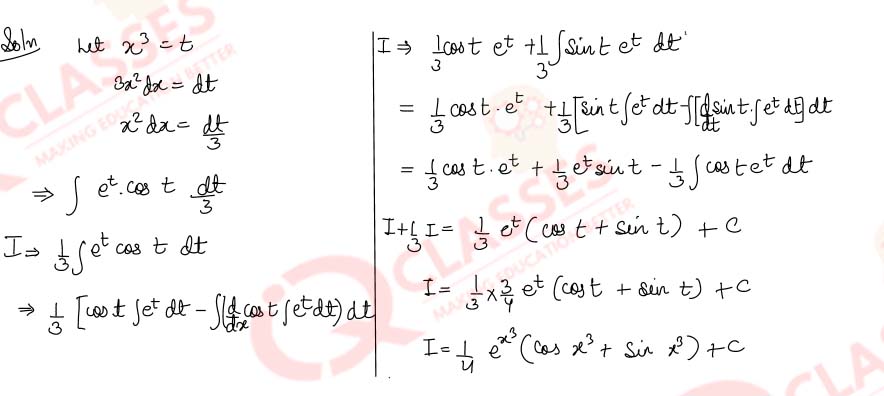 Soln Let x³ = t
3x²dx = dt
x²dx = dt/3
⇒ ∫ eᵗ. cos t dt/3
I ⇒ 1/3 ∫ eᵗ cos t dt
⇒ 1/3 [cos t ∫eᵗ dt - ∫(d/dx cos t ∫eᵗdt) dt
I ⇒ 1/3 cos t eᵗ + 1/3 ∫ sin t eᵗ dt
= 1/3 cos t . eᵗ + 1/3 [sin t ∫eᵗ dt - ∫[d/dt sin t . ∫eᵗ dt] dt
= 1/3 cos t . eᵗ + 1/3 eᵗ sin t - 1/3 ∫ cos t eᵗ dt
I + 1/3 I = 1/3 eᵗ (cos t + sin t) + C
I = 1/3 × 3/4 eᵗ (cos t + sin t) + C
I = 1/4 e^x³ (cos x³ + sin x³) + C
CLASSES
MAKING EDUCATION BETTER
IQ CLASSES
MAKING EDUCATION BETTER
CLA